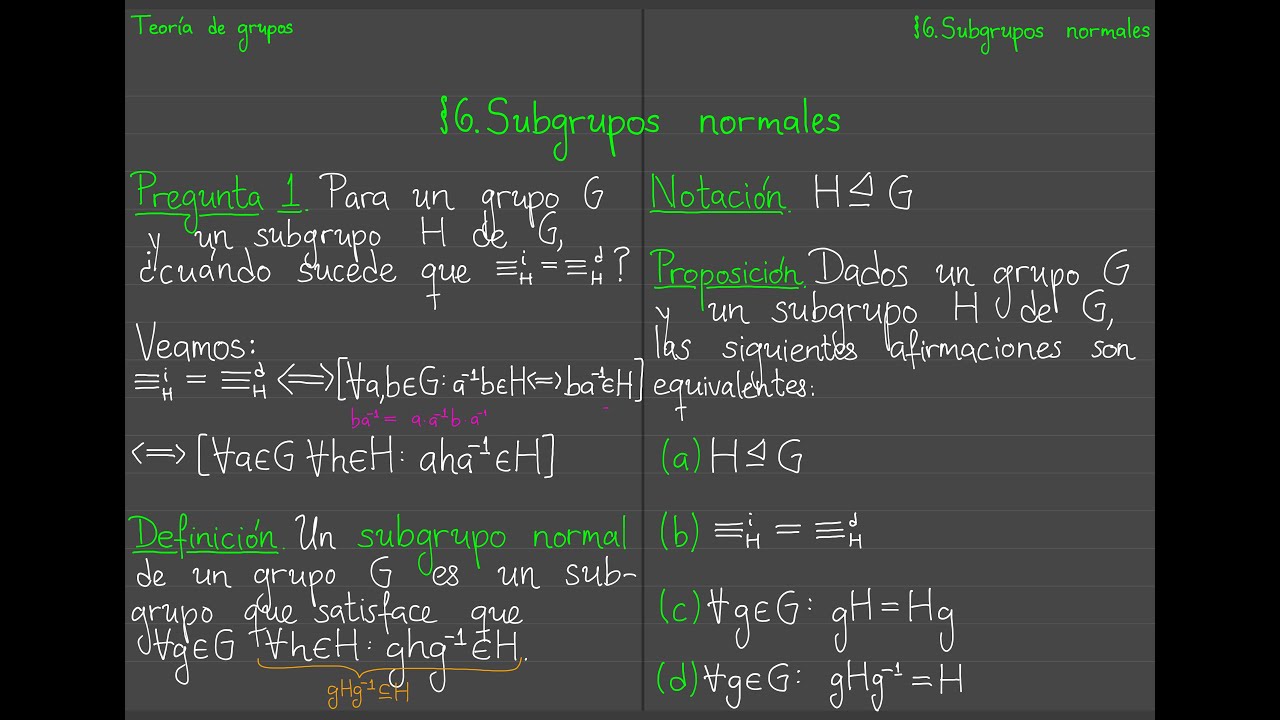 Teoría de grupos
§6. Subgrupos normales
§6. Subgrupos normales
Pregunta 1. Para un grupo G
y un subgrupo H de G,
¿cuándo sucede que ≡ᵢH = ≡ᵈH ?
Veamos:
≡ⁱH = ≡ᵈH ⟺ [∀a,b∈G: a⁻¹b∈H ⟺ ba⁻¹∈H]
ba⁻¹ = a·a⁻¹b·a⁻¹
⟺ [∀a∈G ∀h∈H: aha⁻¹∈H]
Definición. Un subgrupo normal
de un grupo G es un sub-
grupo que satisface que
∀g∈G ∀h∈H: ghg⁻¹∈H.
gHg⁻¹⊆H
Notación. H⊴G
Proposición. Dados un grupo G
y un subgrupo H de G,
las siguientes afirmaciones son
equivalentes:
(a) H⊴G
(b) ≡ⁱH = ≡ᵈH
(c) ∀g∈G: gH=Hg
(d) ∀g∈G: gHg⁻¹=H